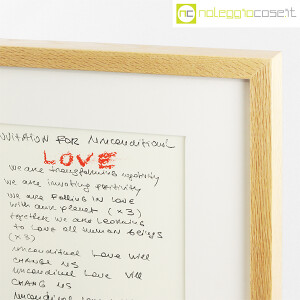 noleggiocose.it
NVITATION FOR UNCONDITIONL
LOVE
we are transforming negativity
we are invoking positivity
we are FALLING IN LOVE
with our planet (x3)
together we are LEARNING
to LOVE ALL HUMAN BEINGS
(x3)
unconditional Love will
CHANGE US
unconditional Love will
CHANG US
unconditional Love